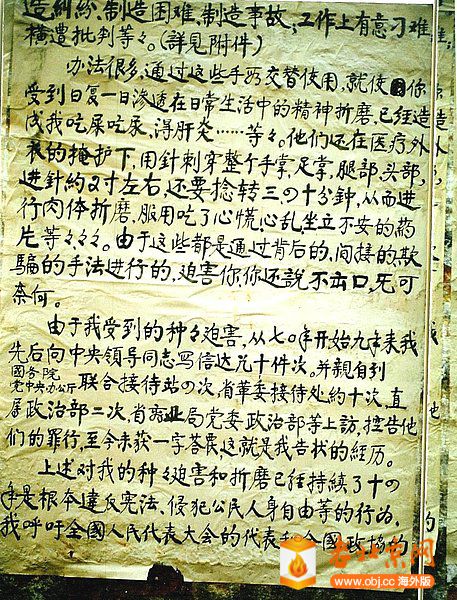 造糾纷,制造困难,制造事故,工作上有意刁难,
横遭批判等々。(詳見附件)
办法很多,通过这些手段交替使用,就使你
受到日复一日渗透在日常生活中的精神折磨,已经造
成我吃屎吃尿,得肝炎……等々。他们还在医疗外
衣的掩护下,用針刺穿整个手掌,足掌,腿部,头部,
进針約2寸左右,还要捻转三四十分钟,从而进
行肉体折磨,服用吃了心慌,心乱,坐立不安的药
片等々々。由于这些都是通过背后的,间接的,欺
騙的手法进行的,迫害你,你还説不出口,无可
奈何。
由于我受到的种々迫害,从七〇年开始九年来我
先后向中央领导同志写信达几十件次。并親自到
国务院
党中央办公厅联合接待站四次,省革委接待处約十次,直
属政治部二次,省商业局党委政治部等上訪,控告他
们的罪行,至今未获一字答覆,这就是我告状的經历。
上述对我的种々迫害和折磨已经持續了十四
年是根本違反宪法、侵犯公民人身自由等的行为,
我呼吁全國人民代表大会的代表和全國政协的
老北京网
www.obj.cc 海外版